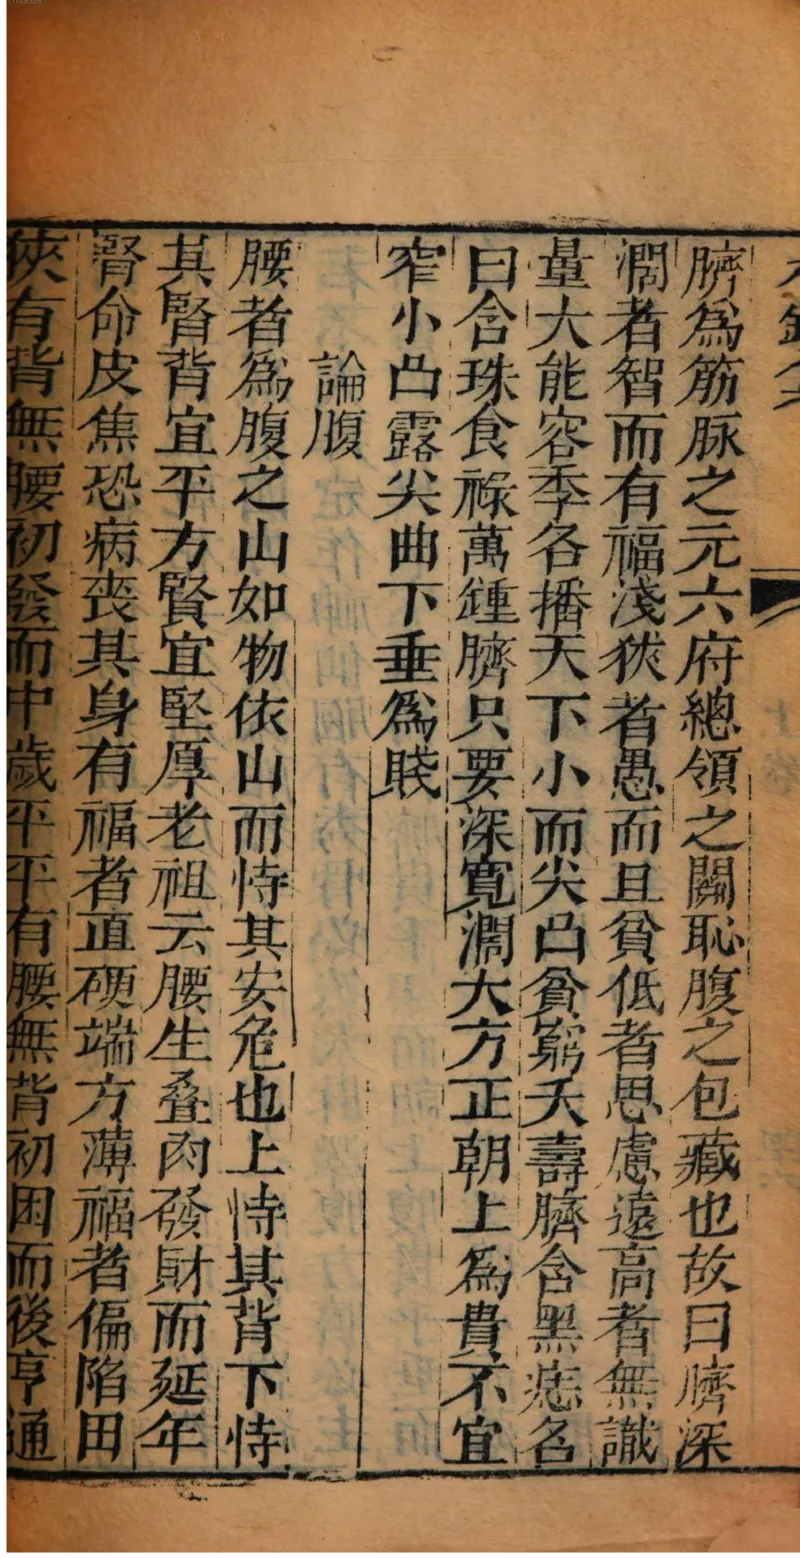 臍為筋脉之元六府總領之關恥腹之包藏也故曰臍深
濶者智而有福淺狹者愚而且貧低者思慮遠高者無識
量大能容季各播天下小而尖凸貧窮夭壽臍含黑痣名
曰含珠食祿萬鍾臍只要深寬濶大方正朝上為貴不宜
窄小凸露尖曲下垂為賎
論腹
腰者為腹之山如物依山而恃其安危也上恃其背下恃
其腎背宜平方賢宜堅厚老祖云腰生叠肉發財而延年
腎命皮焦恐病喪其身有福者直硬端方薄福者偏陷田
俠有背無腰初發而中歲平平有腰無背初困而後亨通